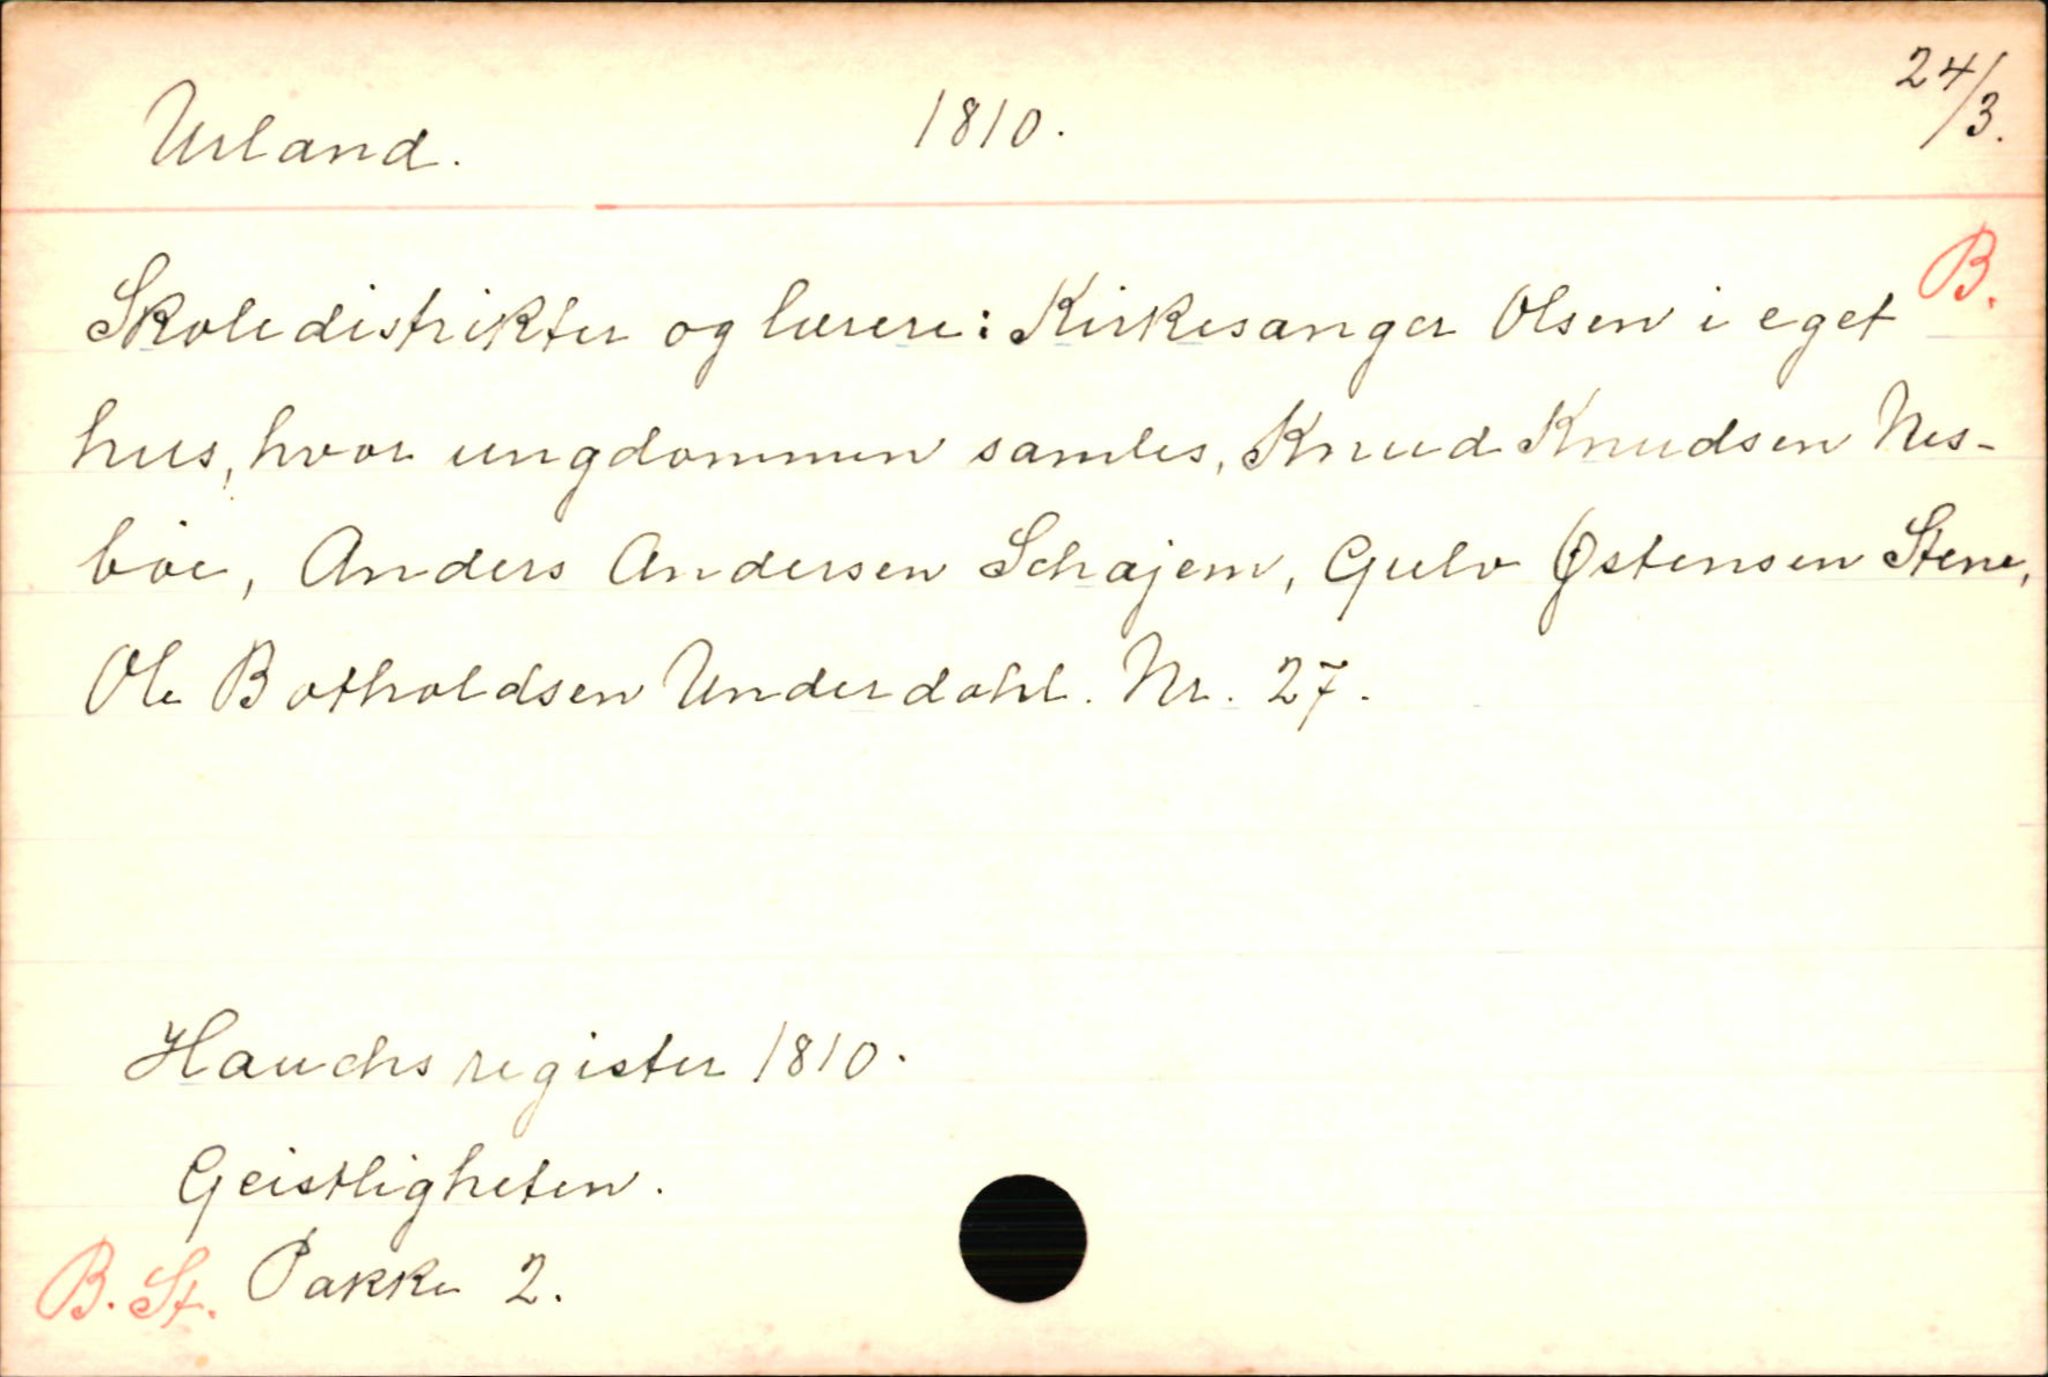 Urland. 1810. 24/3.
B.
Skoledistrikter og lærere: Kirkesanger Olsen i eget
hus, hvor ungdommen samles, Knud Knudsen Nes-
böe, Anders Andersen Schajem, Gulv Østensen Stene,
Ole Botholdsen Underdahl. Nr. 27.
Hauchs register 1810.
Geistligheten.
B. St. Pakke 2.